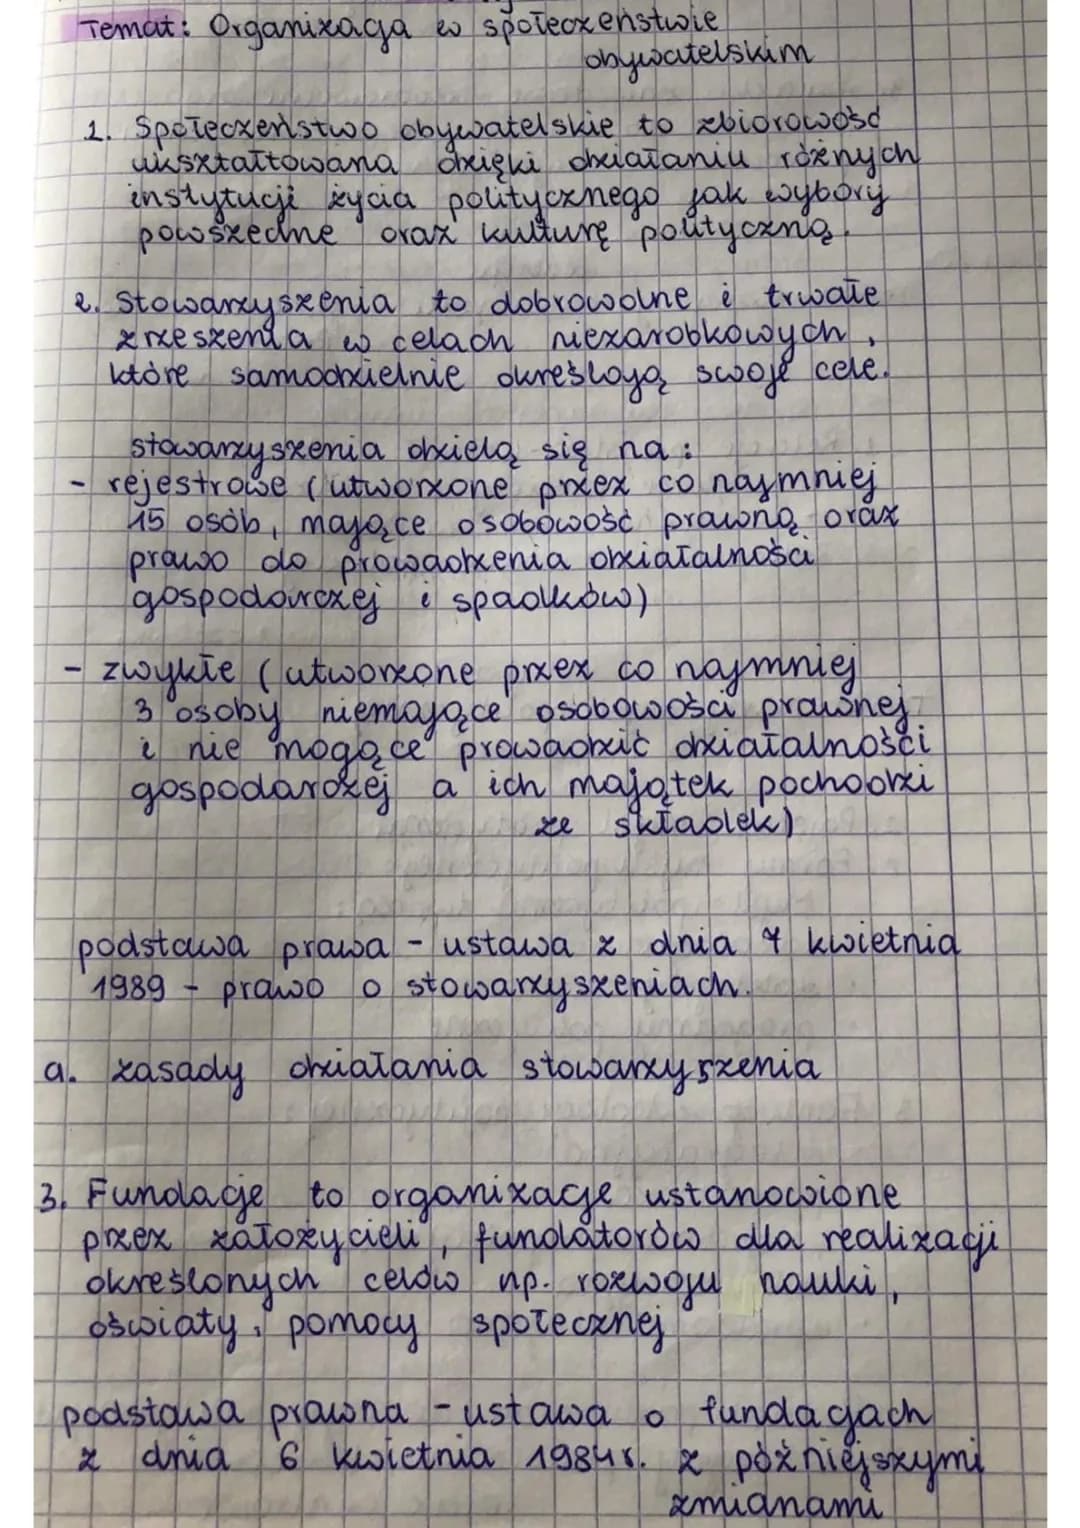 Temat: Organizacja w społeczeństwie
obywatelskim
1. Społeczeństwo obywatelskie to zbiorowość
ukształtowana dzięki działaniu różnych
instytucji życia politycznego jak wybory
powszedne oraz kulturę polityczną.
2. Stowarzyszenia to dobrowolne i trwałe
zrzeszenia w celach niezarobkowych,
które samodzielnie określają swoje cele.
stowarzyszenia dzielą się na:
- rejestrowe (utworzone przez co najmniej
15 osób, mające osobowość prawną oraz
prawo do prowadzenia działalności
gospodarczej i spadków)
- zwykłe (utworzone przez co najmniej
3 osoby niemające osobowości prawnej
i nie mogące prowadzić działalności
gospodarczej a ich majątek pochodzi
ze składek)
podstawa prawa - ustawa z dnia 7 kwietnia
1989 - prawo o stowarzyszeniach.
a. zasady działania stowarzyszenia
3. Fundacje to organizacje ustanowione
przez założycieli, fundatorów dla realizacji
określonych celów np. rozwoju nauki,
oświaty, pomocy społecznej
podstawa prawna - ustawa o fundacjach
z dnia 6 kwietnia 1984r. z późniejszymi
zmianami